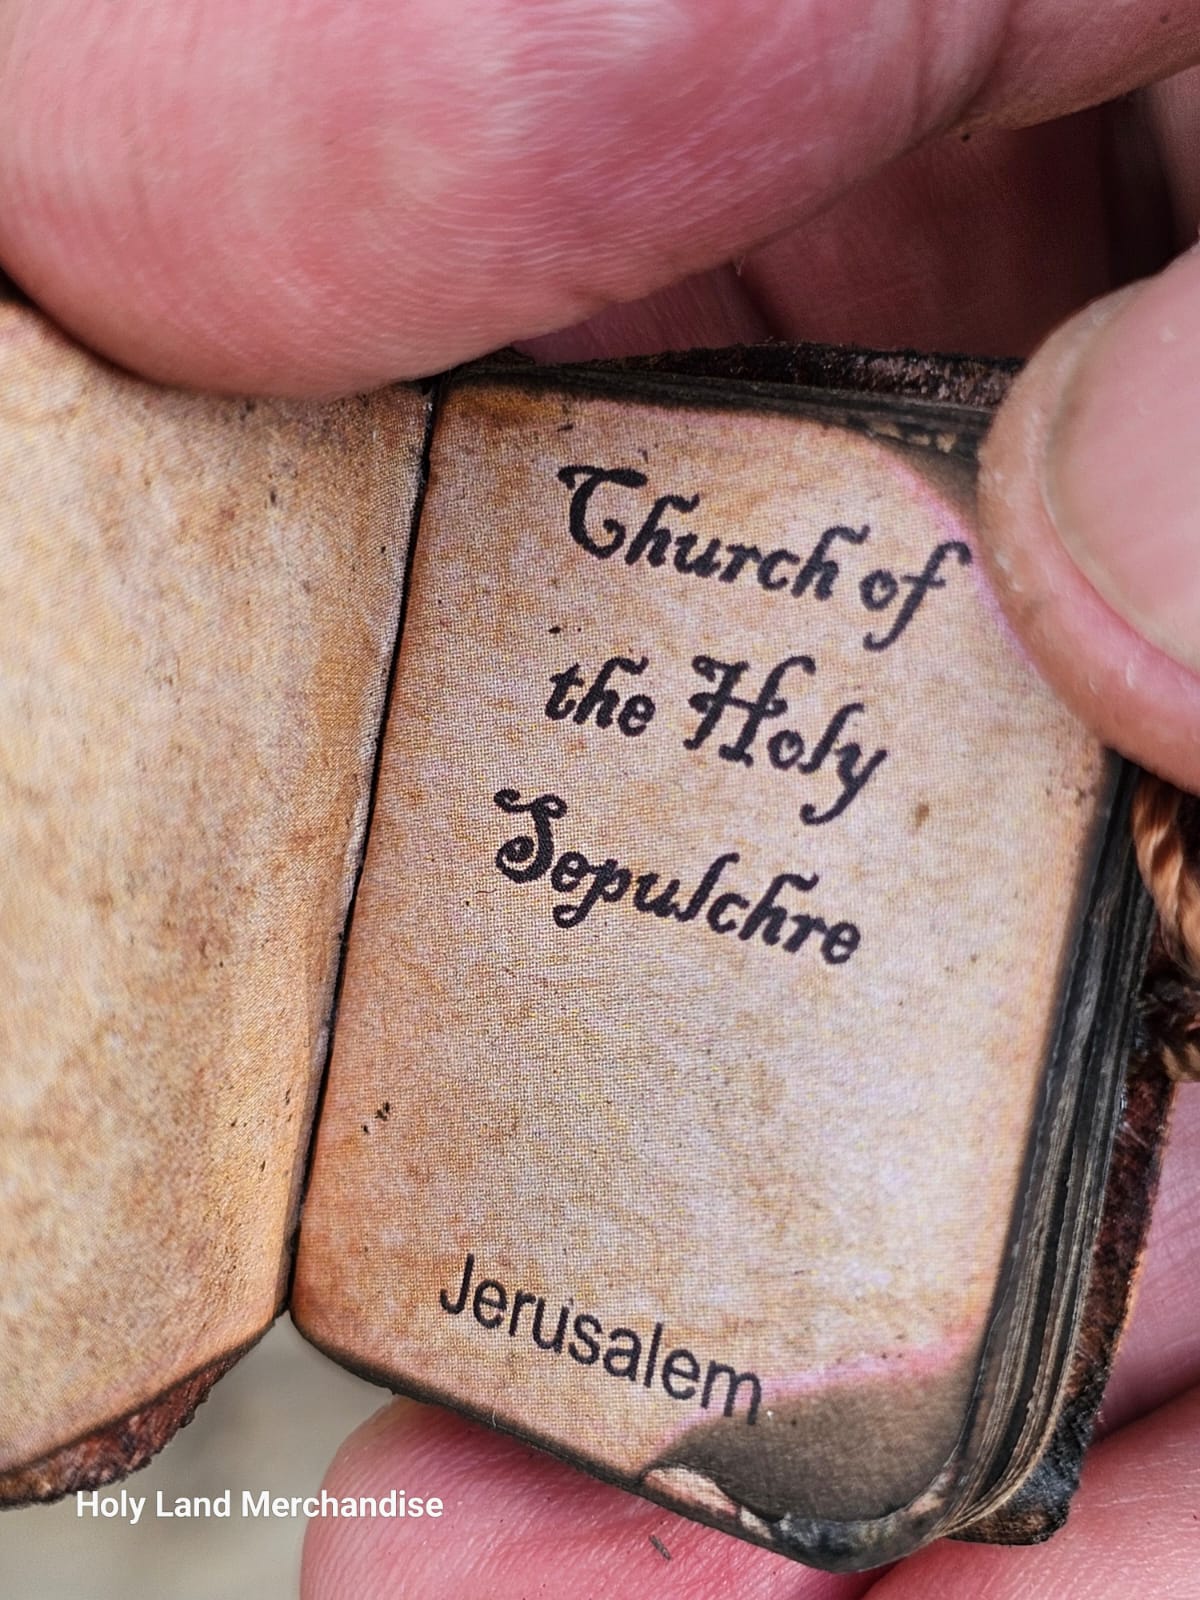 Church of
the Holy
Sepulchre
Jerusalem
Holy Land Merchandise